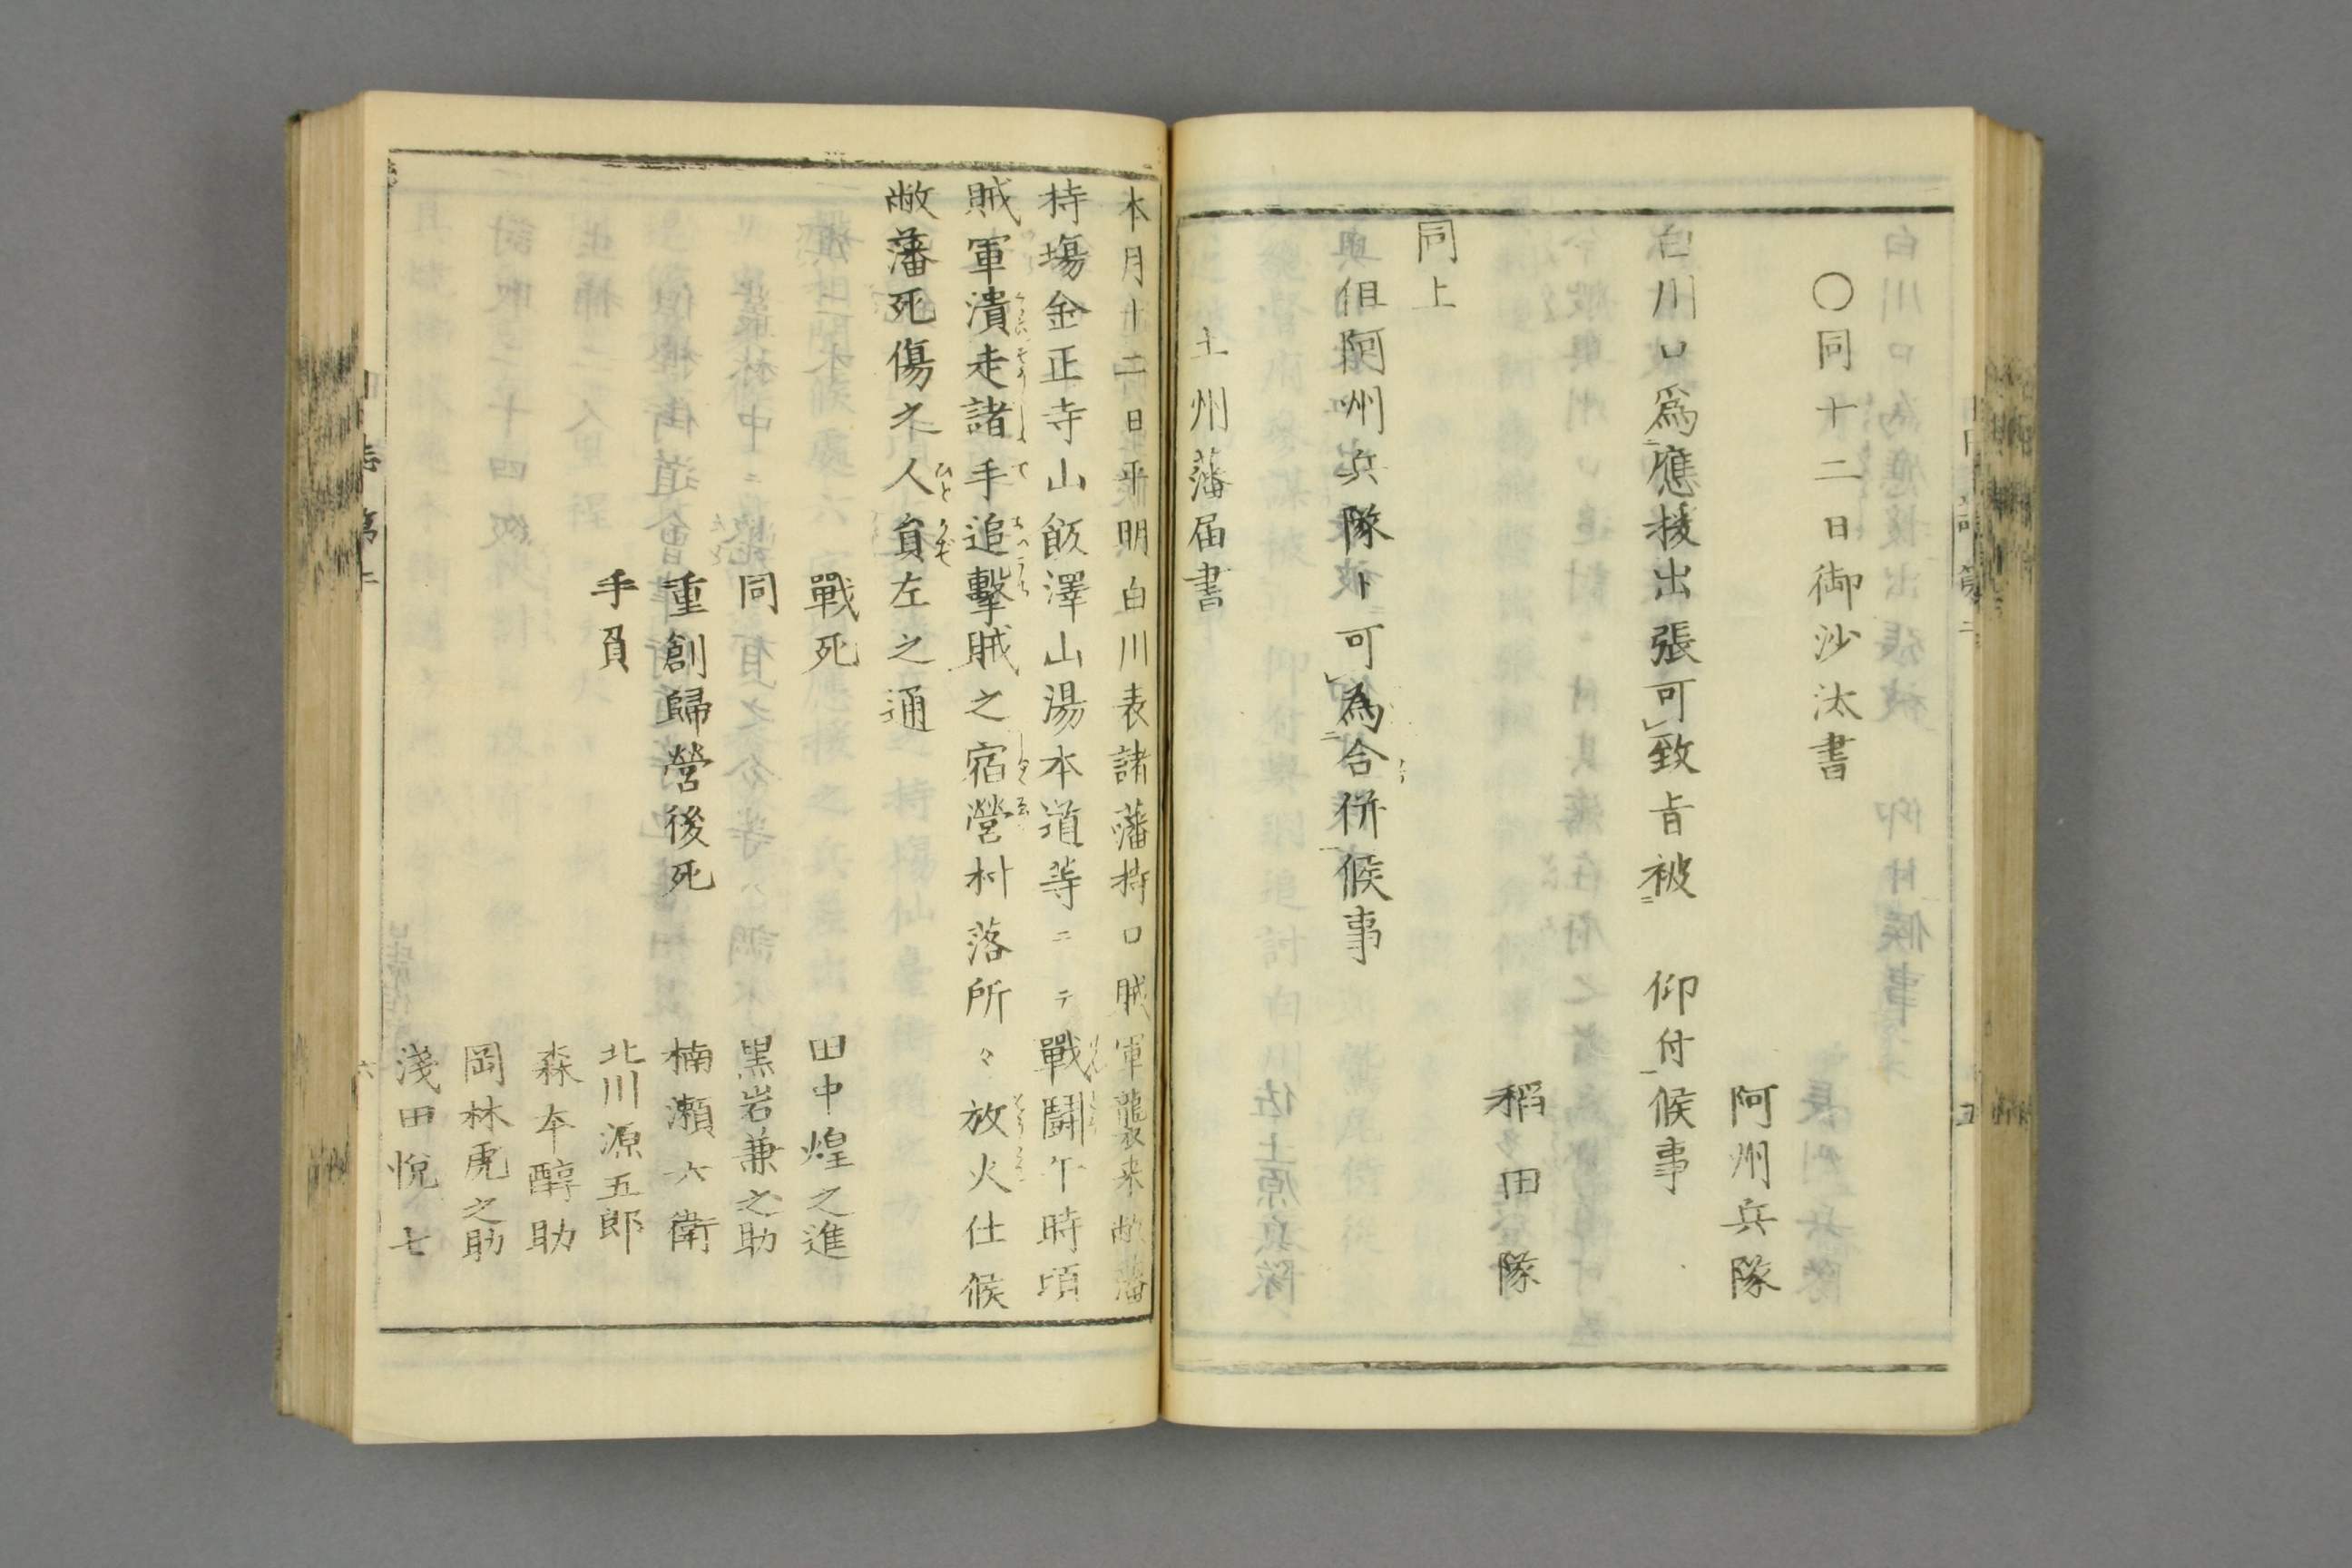 〇同十二日御沙汰書
阿州兵隊
白川口為應援出張可致旨被　仰付候事
稻田隊
同上
但阿州兵隊ト可為合併候事
土州藩届書
本月十二日平明白川表諸藩持口賊軍襲来敝藩
持塲金正寺山飯澤山湯本道等ニテ戰鬪午時頃
賊軍潰走諸手追擊賊之宿營村落所々放火仕候
敝藩死傷之人員左之通
戰死　田中煌之進
同　黒岩兼之助
重創歸營後死　楠瀬六衛
手負　北川源五郎
森本醇助
岡林虎之助
淺田悦七
六